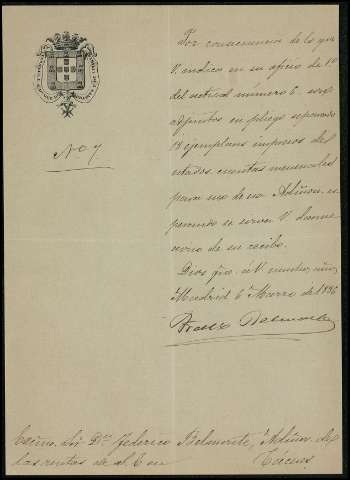 Por consecuencia de lo que
V. indica en su oficio de 1º
del actual número 6. son
adjuntos en pliego separado
18 ejemplares impresos de
estados, cuentas mensuales
para uso de esa Admon. es
perando se sirva V. darme
aviso de su recibo.
Nº 7
Dios gūe. á V. muchos años
Madrid 6 Marzo de 1896
Excmo. Sr. Dn. Federico Belmonte, Admor. de
las rentas de
Cáceres